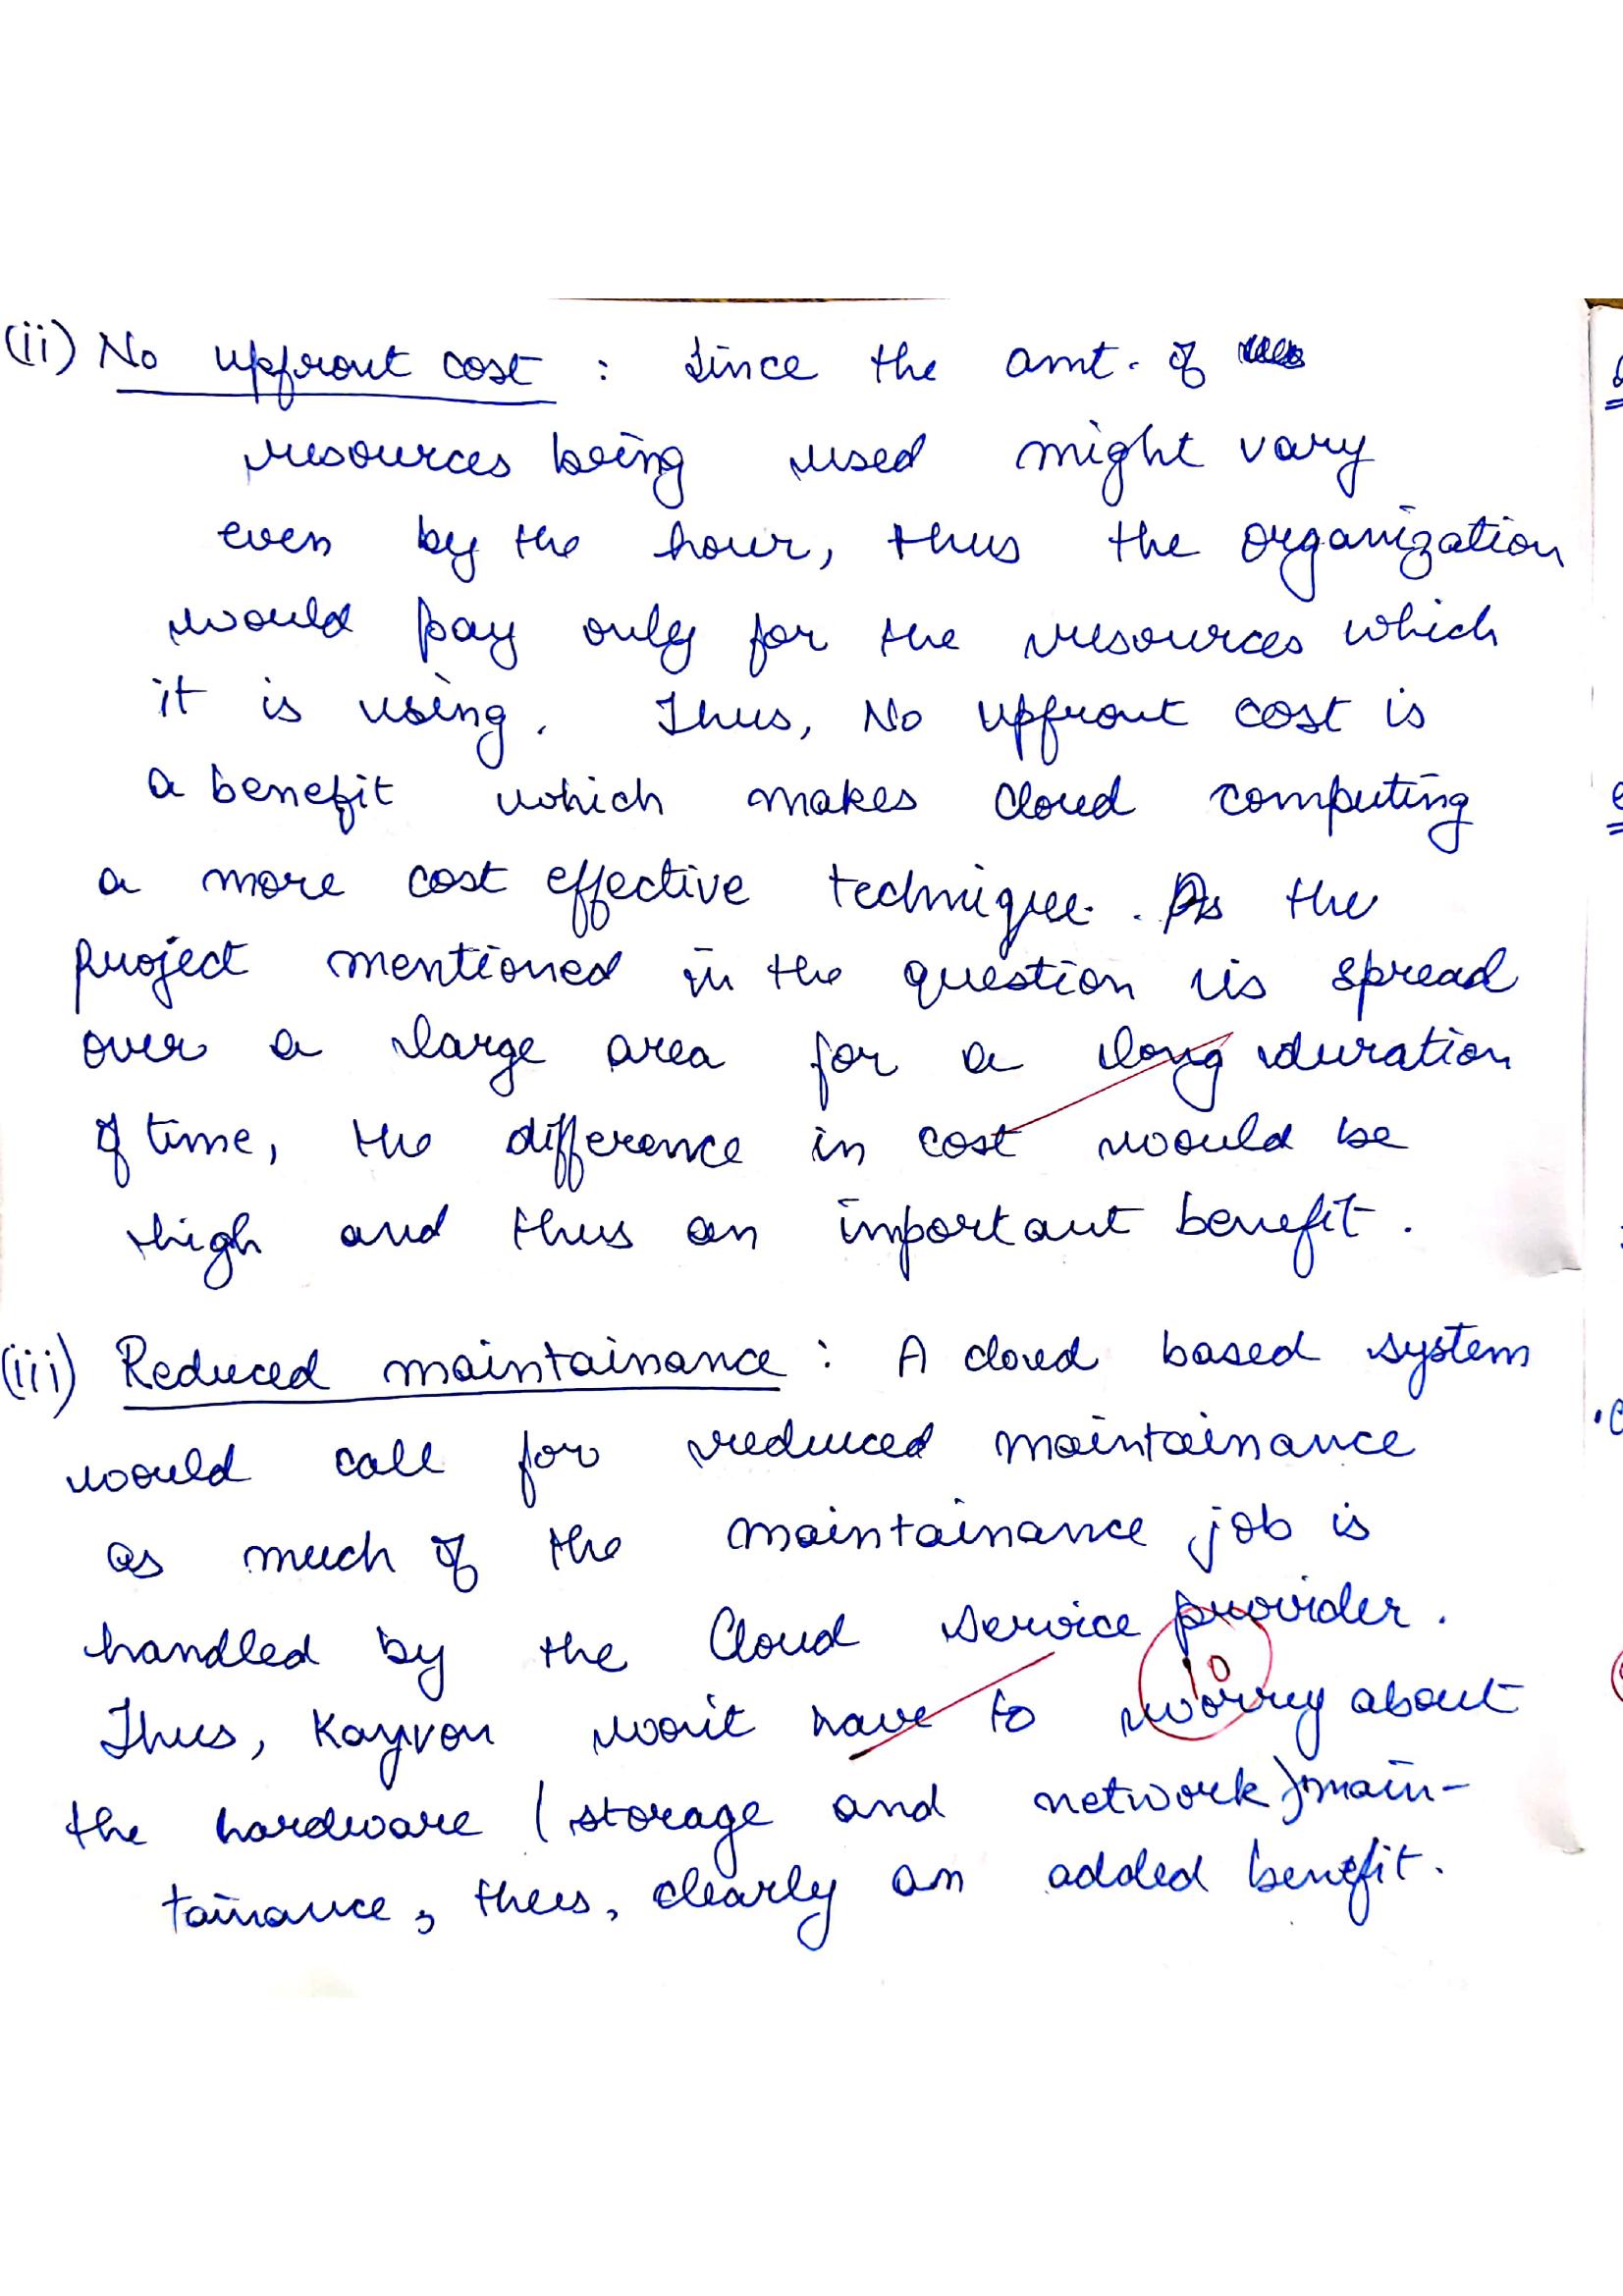 (ii) No upfront cost : Since the amt. of
resources being used might vary
even by the hour, thus the organization
would pay only for the resources which
it is using. Thus, No upfront cost is
a benefit which makes cloud computing
a more cost effective technique. As the
project mentioned in the question is spread
over a large area for a long duration
of time, the difference in cost would be
high and thus an important benefit.
(iii) Reduced maintainance : A cloud based system
would call for reduced maintainance
as much of the maintainance job is
handled by the Cloud service provider.
10
Thus, Kayvon won't have to worry about
the hardware (storage and network) main-
tainance, thus, clearly an added benefit.